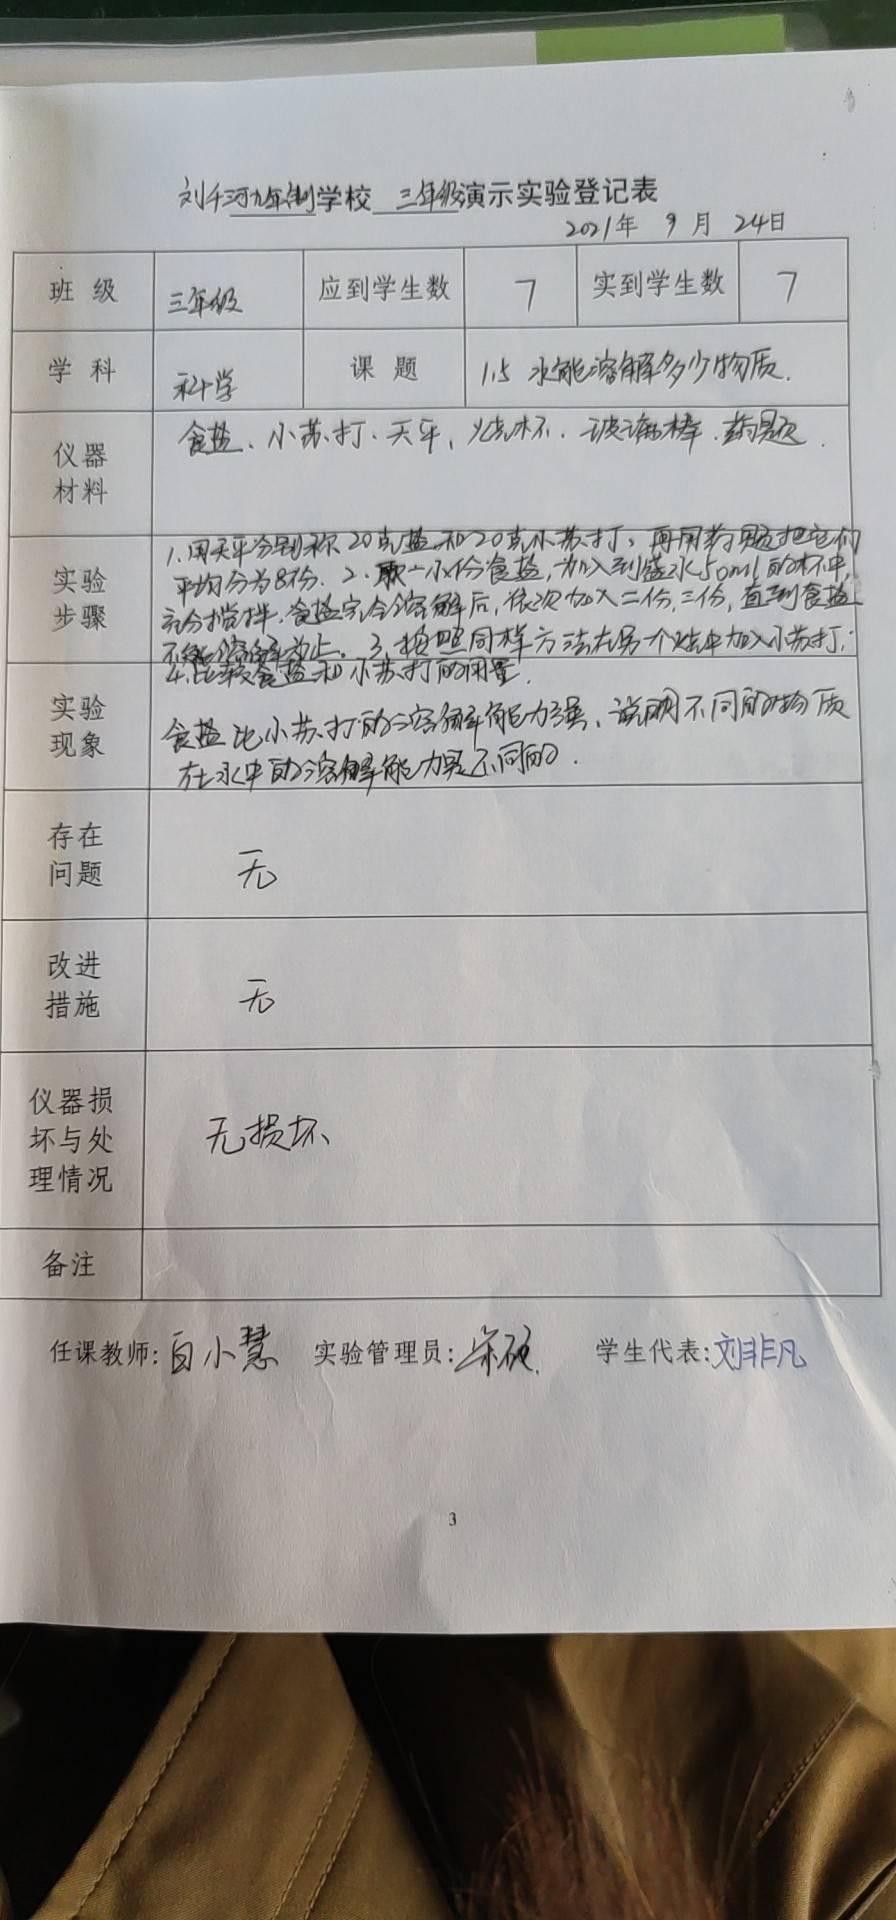 刘千河九年制学校 三年级演示实验登记表
2021年 9月 24日
班级 三年级 应到学生数 7 实到学生数 7
学科 科学 课题 1.5 水能溶解多少物质.
仪器材料 食盐、小苏打、天平、烧杯、玻璃棒、药匙.
实验步骤 1.用天平分别称20克盐和20克小苏打,再用药匙把它们
平均分为8份. 2.取一小份食盐,加入到盛水50ml的杯中,
充分搅拌,食盐完全溶解后,依次加入二份,三份,直到食盐
不能溶解为止. 3.按照同样方法在另个烧中加入小苏打;
4.比较食盐和小苏打的用量.
实验现象 食盐比小苏打的溶解能力强、说明不同的物质
在水中的溶解能力是不同的.
存在问题 无
改进措施 无
仪器损坏与处理情况 无损坏、
备注
任课教师:白小慧 实验管理员: 学生代表:刘非凡
3